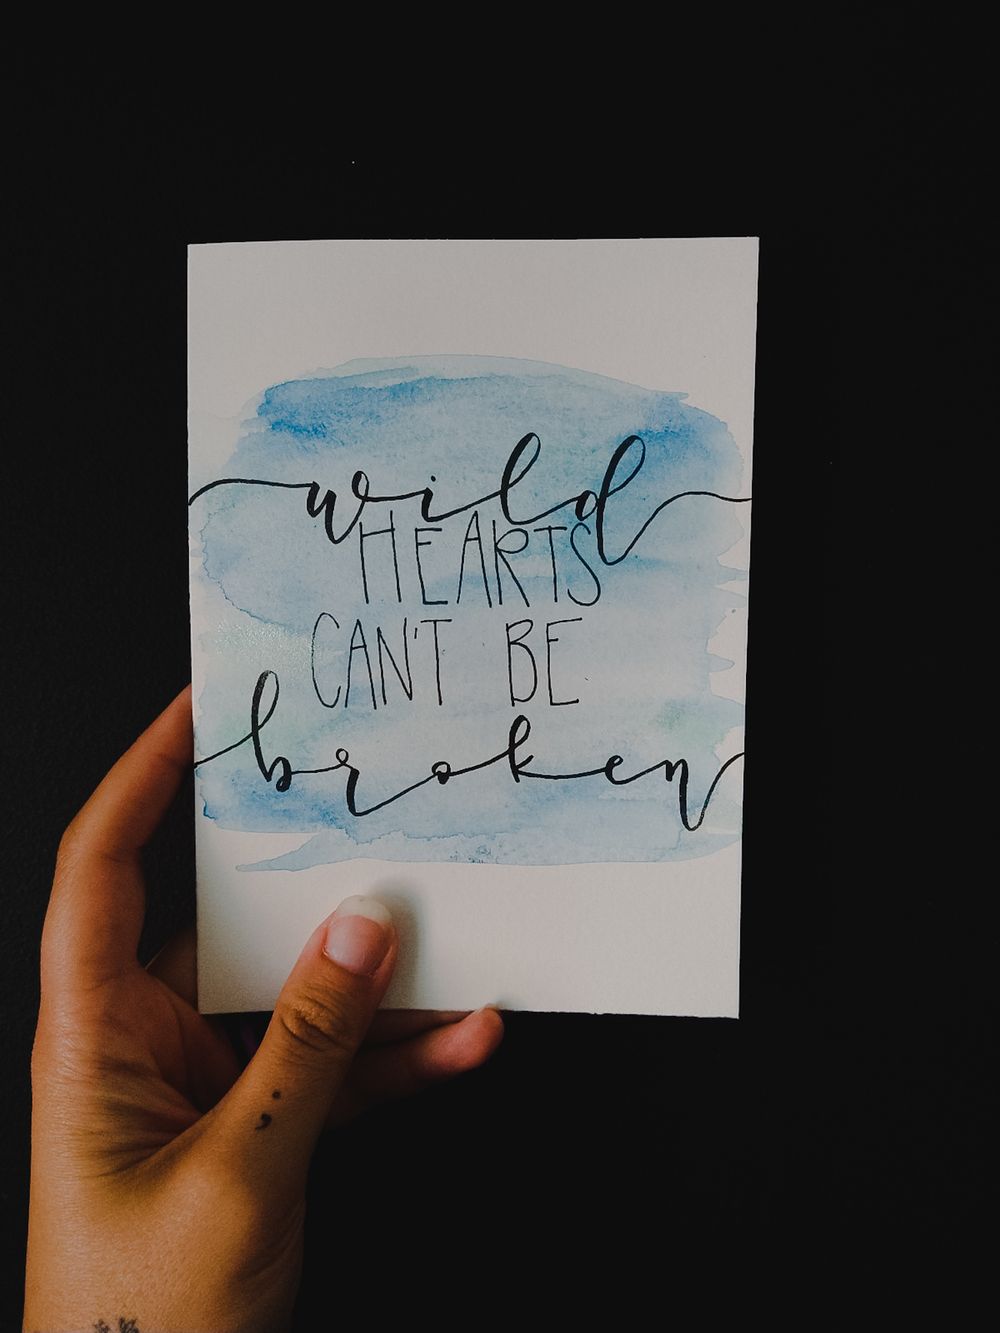 wild
HEARTS
CAN'T BE
broken